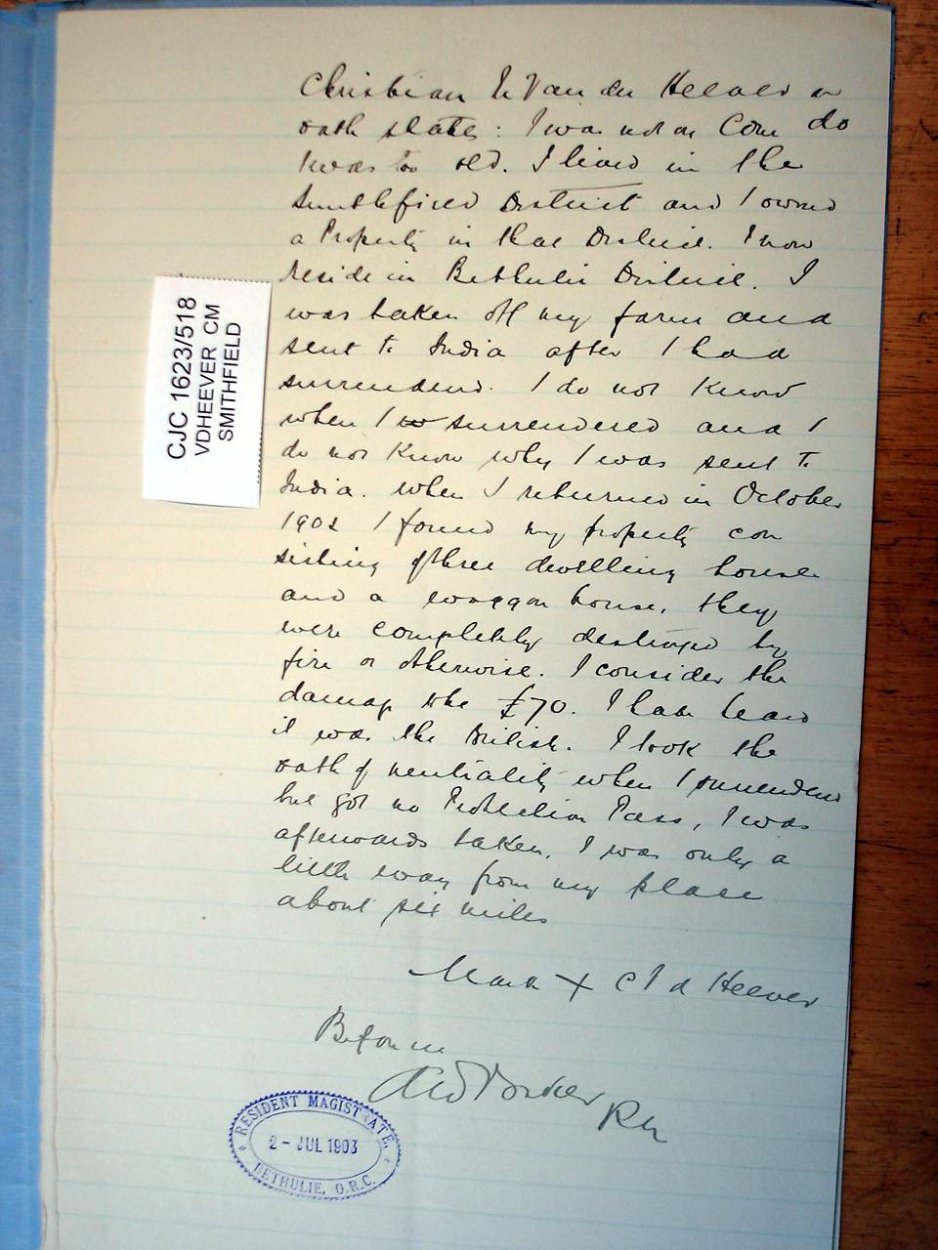 Christian M Van der Heever on
oath states: I was not on Com do
I was too old. I lived in the
Smithfield District and I owned
a Property in that District. I now
reside in Bethulie District. I
was taken off my farm and
sent to India after I had
surrendered. I do not know
when I surrendered and I
do not know why I was sent to
India. When I returned in October
1902 I found my property con
sisting of three dwelling house
and a waggon house, they
were completely destroyed by
fire or otherwise. I consider the
damage to be £70. I have heard
it was the British. I took the
oath of neutrality when I surrendered
but got no Protection Pass, I was
afterwards taken. I was only a
little way from my place
about six miles
Mark + C V d Heever
Before me
RM
CJC 1623/518
VDHEEVER CM
SMITHFIELD
RESIDENT MAGISTRATE.
2 - JUL 1903
BETHULIE, O.R.C.